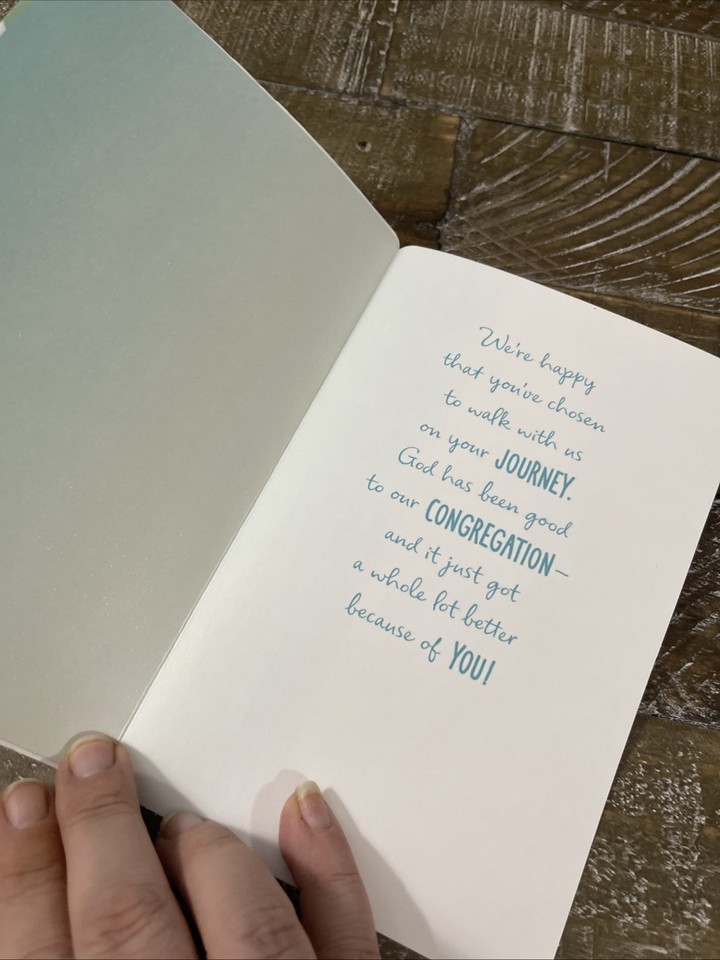 We're happy
that you've chosen
to walk with us
on your JOURNEY.
God has been good
to our CONGREGATION—
and it just got
a whole lot better
because of YOU!